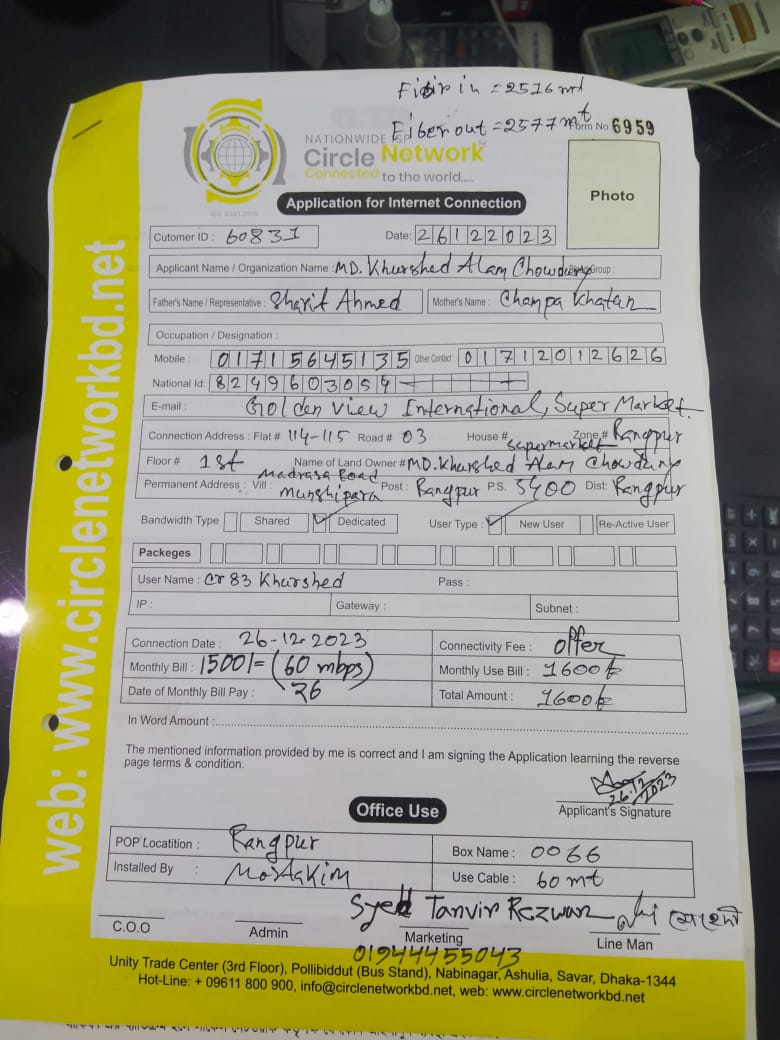 Fibir in = 2516 md
Fiber out = 2577 mt
Form No 6959
NATIONWIDE ISP
Circle Network
Connected to the world.....
ISO 9001:2015
Photo
Application for Internet Connection
Cutomer ID : 60831 Date: 26122023
Applicant Name / Organization Name : MD. Khurshed Alam Chowdury Blood Group :
Father's Name / Representative : Sharif Ahmed Mother's Name : Champa Khatun
Occupation / Designation :
Mobile : 01715645135 Other Contact : 01712012626
National Id: 8249603054
E-mail : Golden View International, Super Market.
Connection Address : Flat # 114-115 Road # 03 House # supermarket Zone # Rangpur
Floor # 1st Name of Land Owner # MD. Khurshed Alam Chowdury
Permanent Address : Vill : Madrasa Road Munshipara Post : Rangpur P.S. 5400 Dist: Rangpur
Bandwidth Type Shared ✓ Dedicated User Type : ✓ New User Re-Active User
Packeges
User Name : cr83 Khurshed Pass :
IP : Gateway : Subnet :
Connection Date : 26-12-2023 Connectivity Fee : offer
Monthly Bill : 1500/= (60 mbps) Monthly Use Bill : 1600 ৳
Date of Monthly Bill Pay : 26 Total Amount : 1600 ৳
In Word Amount :
The mentioned information provided by me is correct and I am signing the Application learning the reverse
page terms & condition.
26.12.2023
Applicant's Signature
Office Use
POP Locatition : Rangpur Box Name : 0066
Installed By : Mostakim Use Cable : 60 mt
Syed Tanvir Rezwan
C.O.O Admin Marketing Line Man
01944455043
Unity Trade Center (3rd Floor), Pollibiddut (Bus Stand), Nabinagar, Ashulia, Savar, Dhaka-1344
Hot-Line: + 09611 800 900, info@circlenetworkbd.net, web: www.circlenetworkbd.net
web: www.circlenetworkbd.net